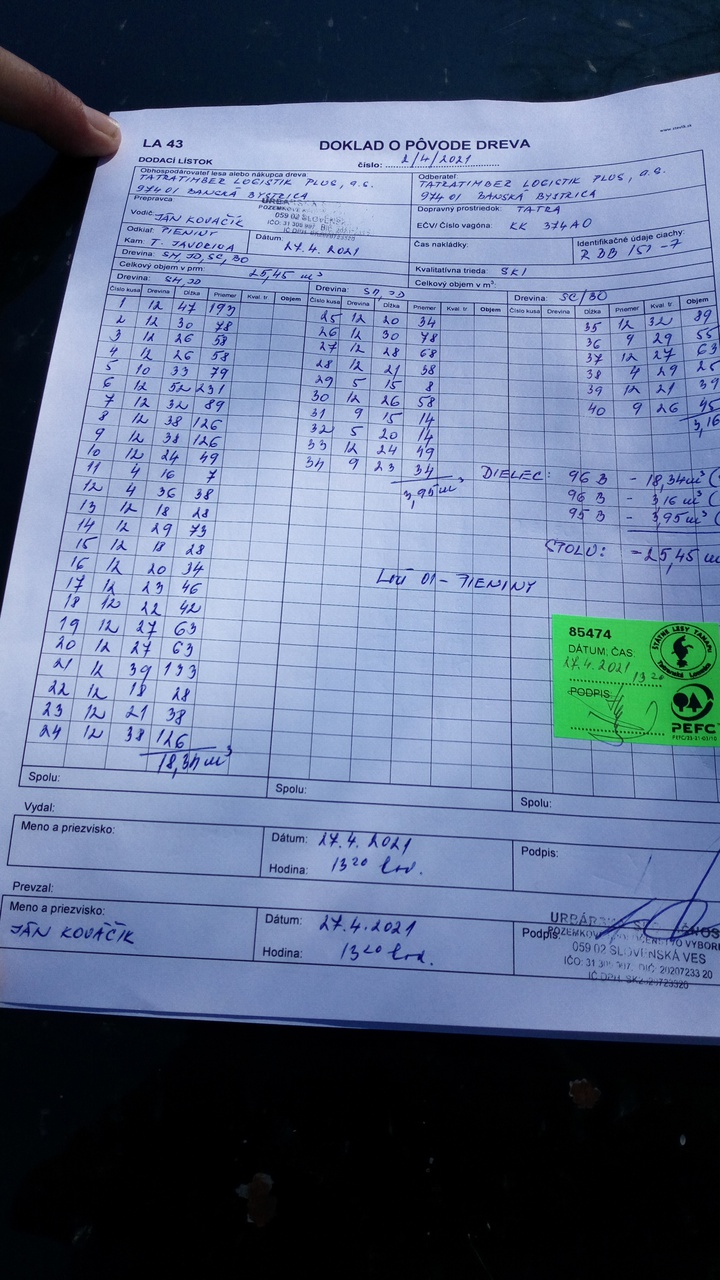 www.slevik.sk
LA 43
DOKLAD O PÔVODE DREVA
DODACÍ LÍSTOK
číslo: 2/4/2021
Obhospodárovateľ lesa alebo nákupca dreva:
TATRATIMBER LOGISTIK PLUS, a.s.
974 01 BANSKÁ BYSTRICA
Odberateľ:
TATRATIMBER LOGISTIK PLUS, a.s.
974 01 BANSKÁ BYSTRICA
Prepravca
059 02 SLOVENSK
Vodič: JÁN KOVÁČIK
Odkiaľ: PIENINY
Kam: T. JAVORINA
Dátum: 27.4.2021
Dopravný prostriedok: TATRA
EČV/ Číslo vagóna: KK 374AO
Čas nakládky:
Identifikačné údaje ciachy:
Z DB 151 -7
Drevina: SM, JD, SC, BO
Celkový objem v prm: 25,45 m³
Kvalitatívna trieda: SKI
Celkový objem v m³:
Drevina: SM, JD
Drevina: SM, JD
Drevina: SC/BO
Číslo kusa Drevina Dĺžka Priemer Kval. tr. Objem
Číslo kusa Drevina Dĺžka Priemer Kval. tr. Objem
Číslo kusa Drevina Dĺžka Priemer Kval. tr. Objem
1 12 47 193
2 12 30 78
3 12 26 58
4 12 26 58
5 10 33 79
6 12 52 231
7 12 32 89
8 12 38 126
9 12 38 126
10 12 24 49
11 4 16 7
12 4 36 38
13 12 18 28
14 12 29 73
15 12 18 28
16 12 20 34
17 12 23 46
18 12 22 42
19 12 27 63
20 12 27 63
21 12 39 133
22 12 18 28
23 12 21 38
24 12 38 126
18,34 m³
25 12 20 34
26 12 30 78
27 12 28 68
28 12 21 38
29 5 15 8
30 12 26 58
31 9 15 14
32 5 20 14
33 12 24 49
34 9 23 34
3,95 m³
35 12 32 89
36 9 29 55
37 12 27 63
38 4 29 25
39 12 21 39
40 9 26 45
3,16
DIELEC: 96 B - 18,34 m³ (
96 B - 3,16 m³ (
95 B - 3,95 m³ (
- 25,45 m³
01 - PIENINY
85474
DÁTUM; ČAS:
27.4.2021
13 20
PODPIS
ŠTÁTNE LESY TANAPU
PEFC
Spolu:
Spolu:
Spolu:
Vydal:
Meno a priezvisko:
Dátum: 27.4.2021
Hodina: 13 20 hod.
Podpis:
Prevzal:
Meno a priezvisko:
JÁN KOVÁČIK
Dátum: 27.4.2021
Hodina: 13 20 hod.
Podpis:
059 02 SLOVENSKÁ VES